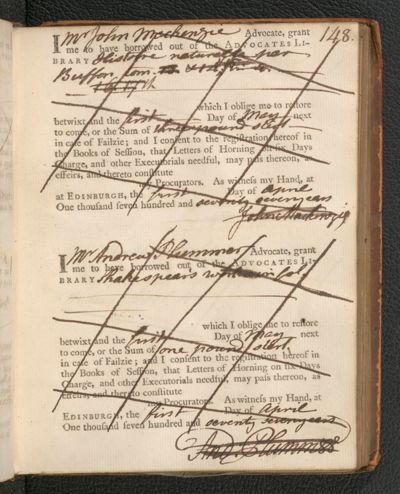 148.
I Mr John Mackenzie Advocate, grant
me to have borrowed out of the ADVOCATES LI-
BRARY Histoire naturelle par
Buffon tom.
which I oblige me to reſtore
betwixt and the first Day of May next
to come, or the Sum of three pounds sterl.
in caſe of Failzie; and I conſent to the regiſtration hereof in
the Books of Seſſion, that Letters of Horning on ſix Days
Charge, and other Executorials needful, may paſs thereon, as
effeirs, and thereto conſtitute
my Procurators. As witneſs my Hand, at
at EDINBURGH, the first Day of April
One thouſand ſeven hundred and seventy seven years
John Mackenzie
I Mr Andrew Plummer Advocate, grant
me to have borrowed out of the ADVOCATES LI-
BRARY Shakespears works
which I oblige me to reſtore
betwixt and the first Day of May next
to come, or the Sum of one pound sterl.
in caſe of Failzie; and I conſent to the regiſtration hereof in
the Books of Seſſion, that Letters of Horning on ſix Days
Charge, and other Executorials needful, may paſs thereon, as
effeirs, and thereto conſtitute
my Procurators. As witneſs my Hand, at
EDINBURGH, the first Day of April
One thouſand ſeven hundred and seventy seven years
And. Plummer